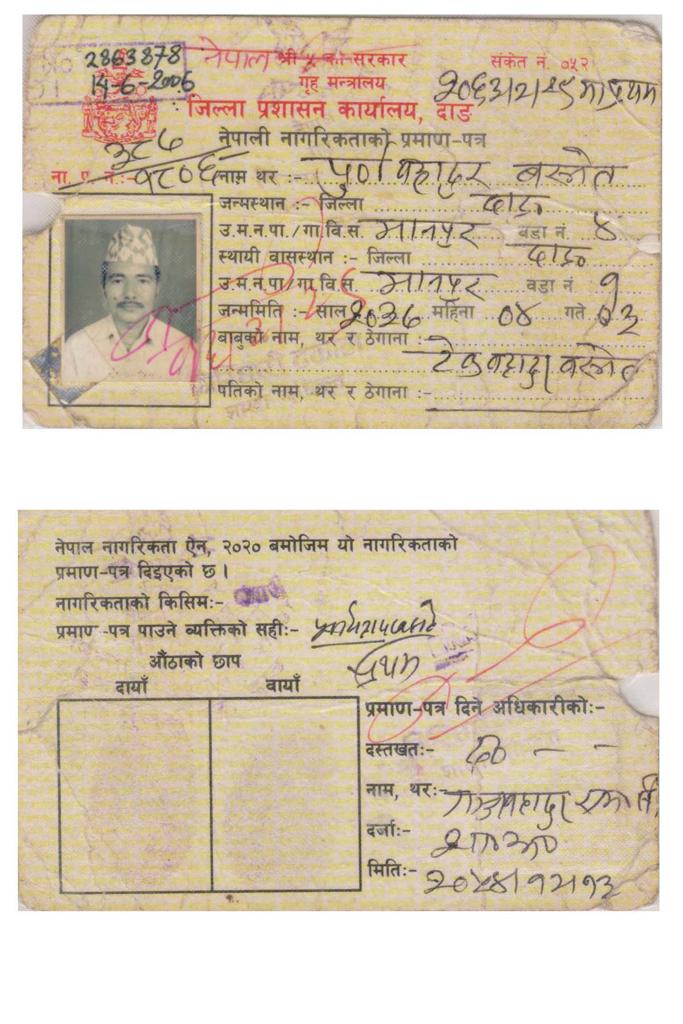 2863878
14-6-2006
नेपाल श्री ५ को सरकार
गृह मन्त्रालय
संकेत नं. ०५२
जिल्ला प्रशासन कार्यालय, दाङ
नेपाली नागरिकताको प्रमाण-पत्र
३८५
ना. प्र. नं.:- १८०६
नाम थर :- पुर्ण बहादुर बस्नेत
जन्मस्थान :- जिल्ला दाङ
उ.म.न.पा./गा.वि.स. मानपुर वडा नं. ४
स्थायी वासस्थान :- जिल्ला दाङ
उ.म.न.पा./गा.वि.स. मानपुर वडा नं १
जन्ममिति :- साल २०३६ महिना ०४ गते १३
बाबुको नाम, थर र ठेगाना :
टेक बहादुर बस्नेत
पतिको नाम, थर र ठेगाना :
नेपाल नागरिकता ऐन, २०२० बमोजिम यो नागरिकताको
प्रमाण-पत्र दिइएको छ।
नागरिकताको किसिम:-
प्रमाण-पत्र पाउने व्यक्तिको सही:-
औंठाको छाप
दायाँ बायाँ
प्रमाण-पत्र दिने अधिकारीको:-
दस्तखत:-
नाम, थर:-
दर्जा:-
मिति:- २०५४।१२।१३